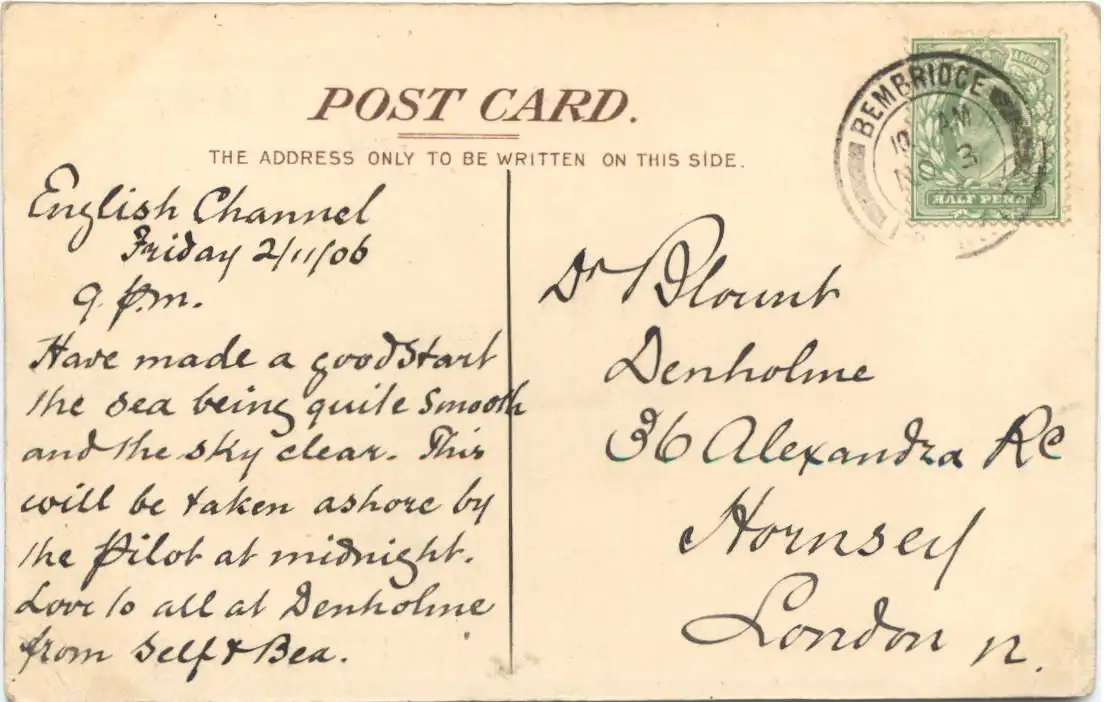 POST CARD.
THE ADDRESS ONLY TO BE WRITTEN ON THIS SIDE.
BEMBRIDGE
AM
3
NO
HALF PENN
English Channel
Friday 2/11/06
9. p.m.
Have made a good start
the sea being quite smooth
and the sky clear. This
will be taken ashore by
the Pilot at midnight.
Love to all at Denholme
from Self & Bea.
Dr Blount
Denholme
36 Alexandra Rd
Hornsey
London N.